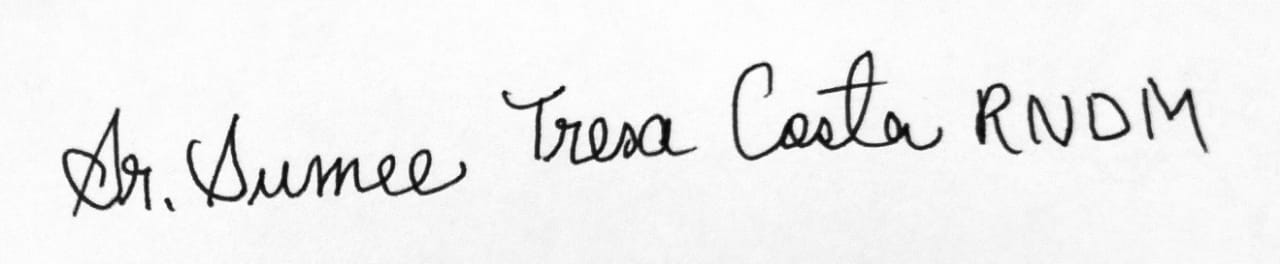 Sr. Sumee Tresa Costa RNDM